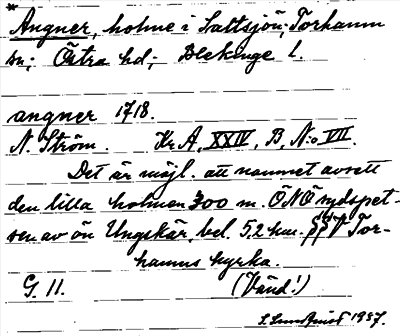 *
Angner, holme i Saltsjön; Torhamn
sn; Östra hd; Blekinge l.
angner 1718.
N. Ström. Kr A, XXIV, B, No VII.
Det är möjl. att namnet avsett
den lilla holmen 300 m. ÖNÖ sydspet-
sen av ön Ungskär, bel. 5,2 km. Tor-
hamns kyrka.
G. 11. (Vänd!)
S. Sundqvist 1937.